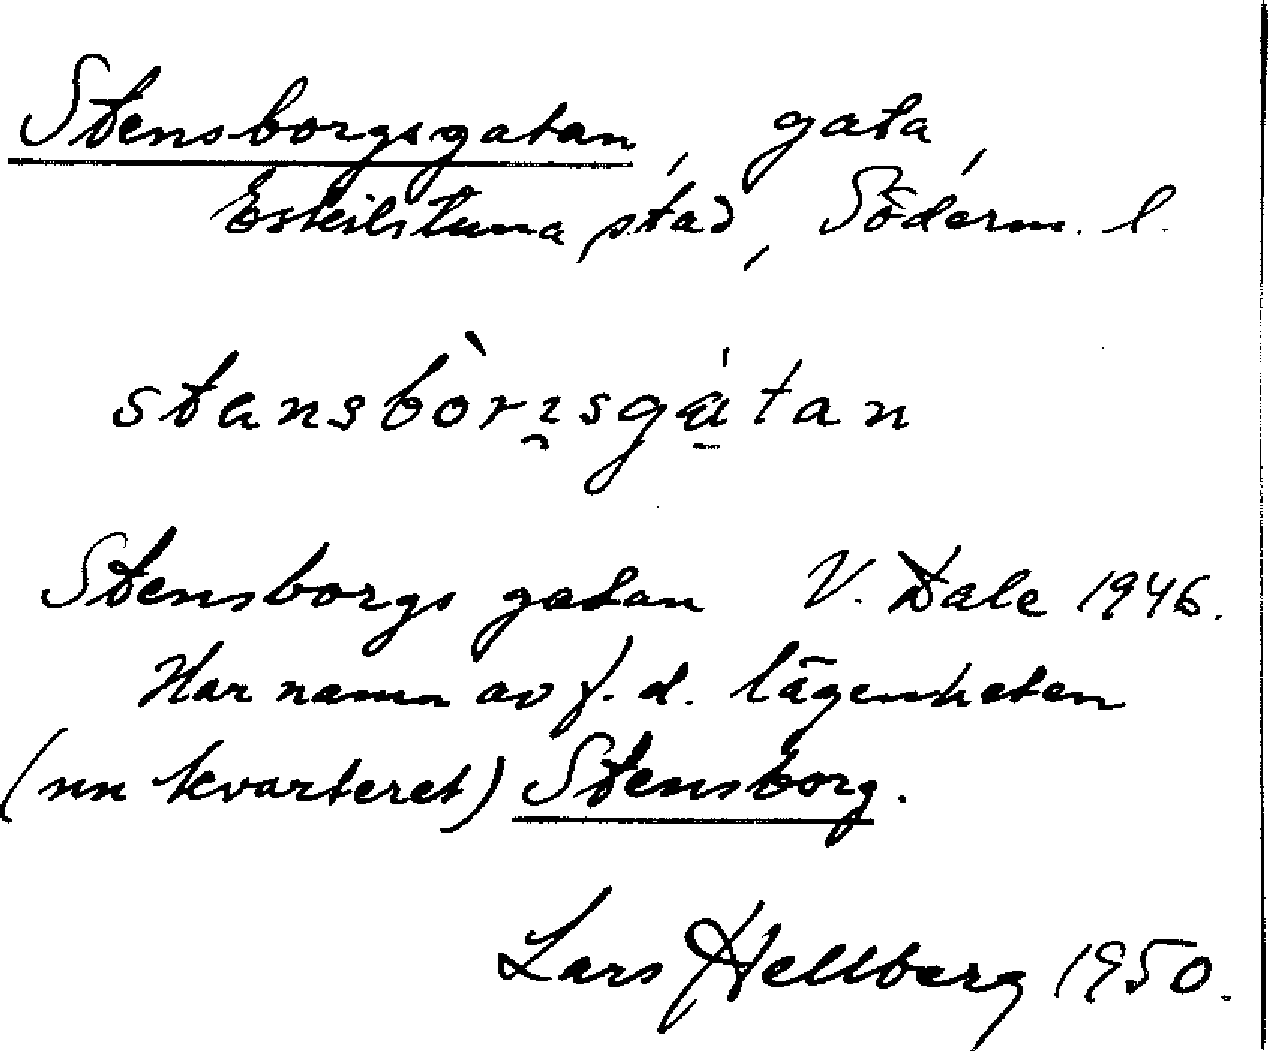 Stensborgsgatan, gata,
Eskilstuna stad, Söderm. l.
Stensborgs gatan V. Dale 1946.
Har namn av f.d. lägenheten
(nu kvarteret) Stensborg.
Lars Hellberg 1950.